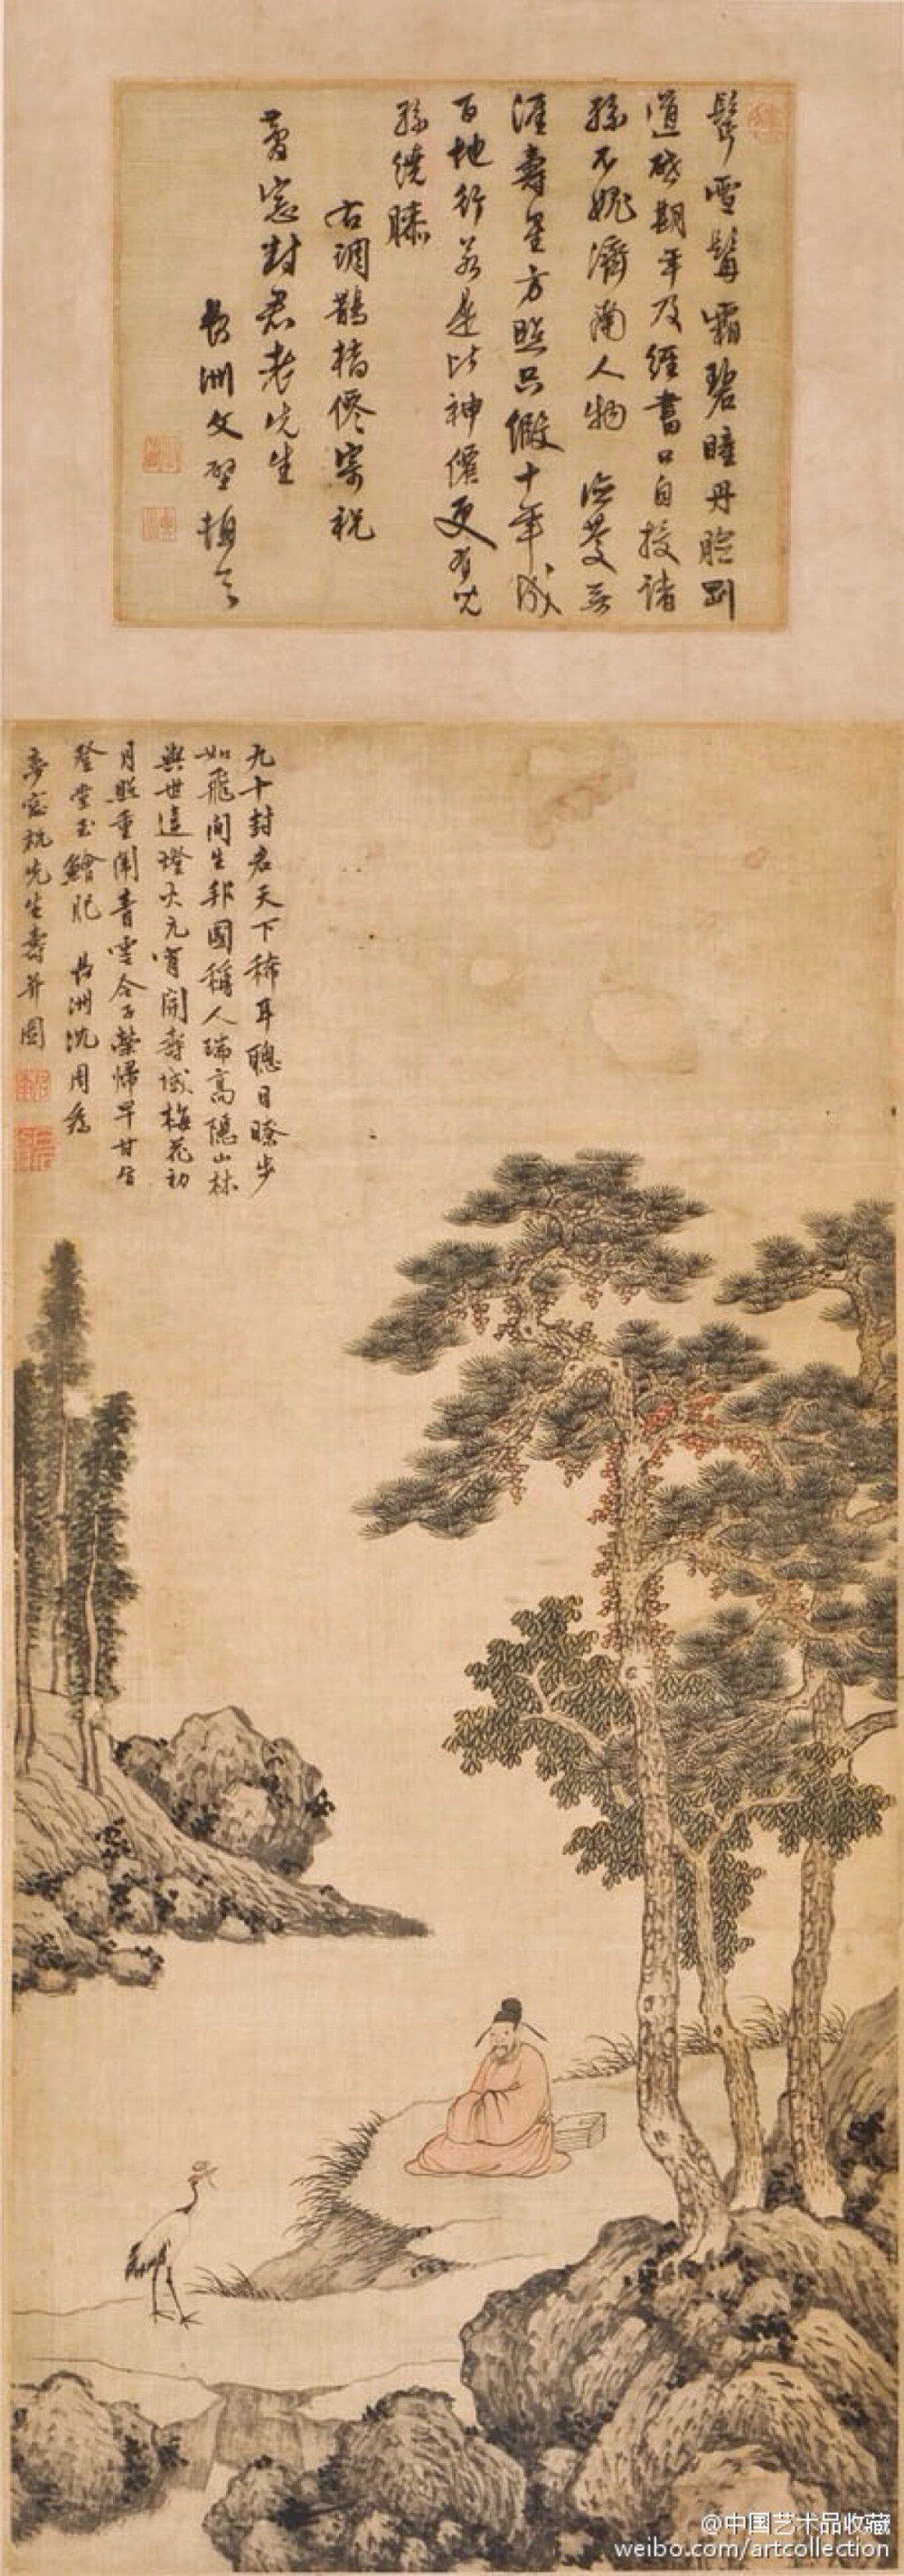 鬢雪髯霜碧瞳丹臉
道 期年及經書口自授諸
孫不 濟南人物 無
涯壽星方照只假十年成
百地行 是比神僊更有
孫繞膝
古調鵲橋僊寄祝
 窓封君老先生
長洲文壁頓首
九十封君天下稀耳聰目瞭步
如飛間生邦國稱人瑞高隱山林
與世違燈火元宵開壽域梅花初
月照重闈青雲令子榮歸早甘旨
登堂玉鱠肥 長洲沈周為
 窓祝先生壽并圖
@中国艺术品收藏
weibo.com/artcollection